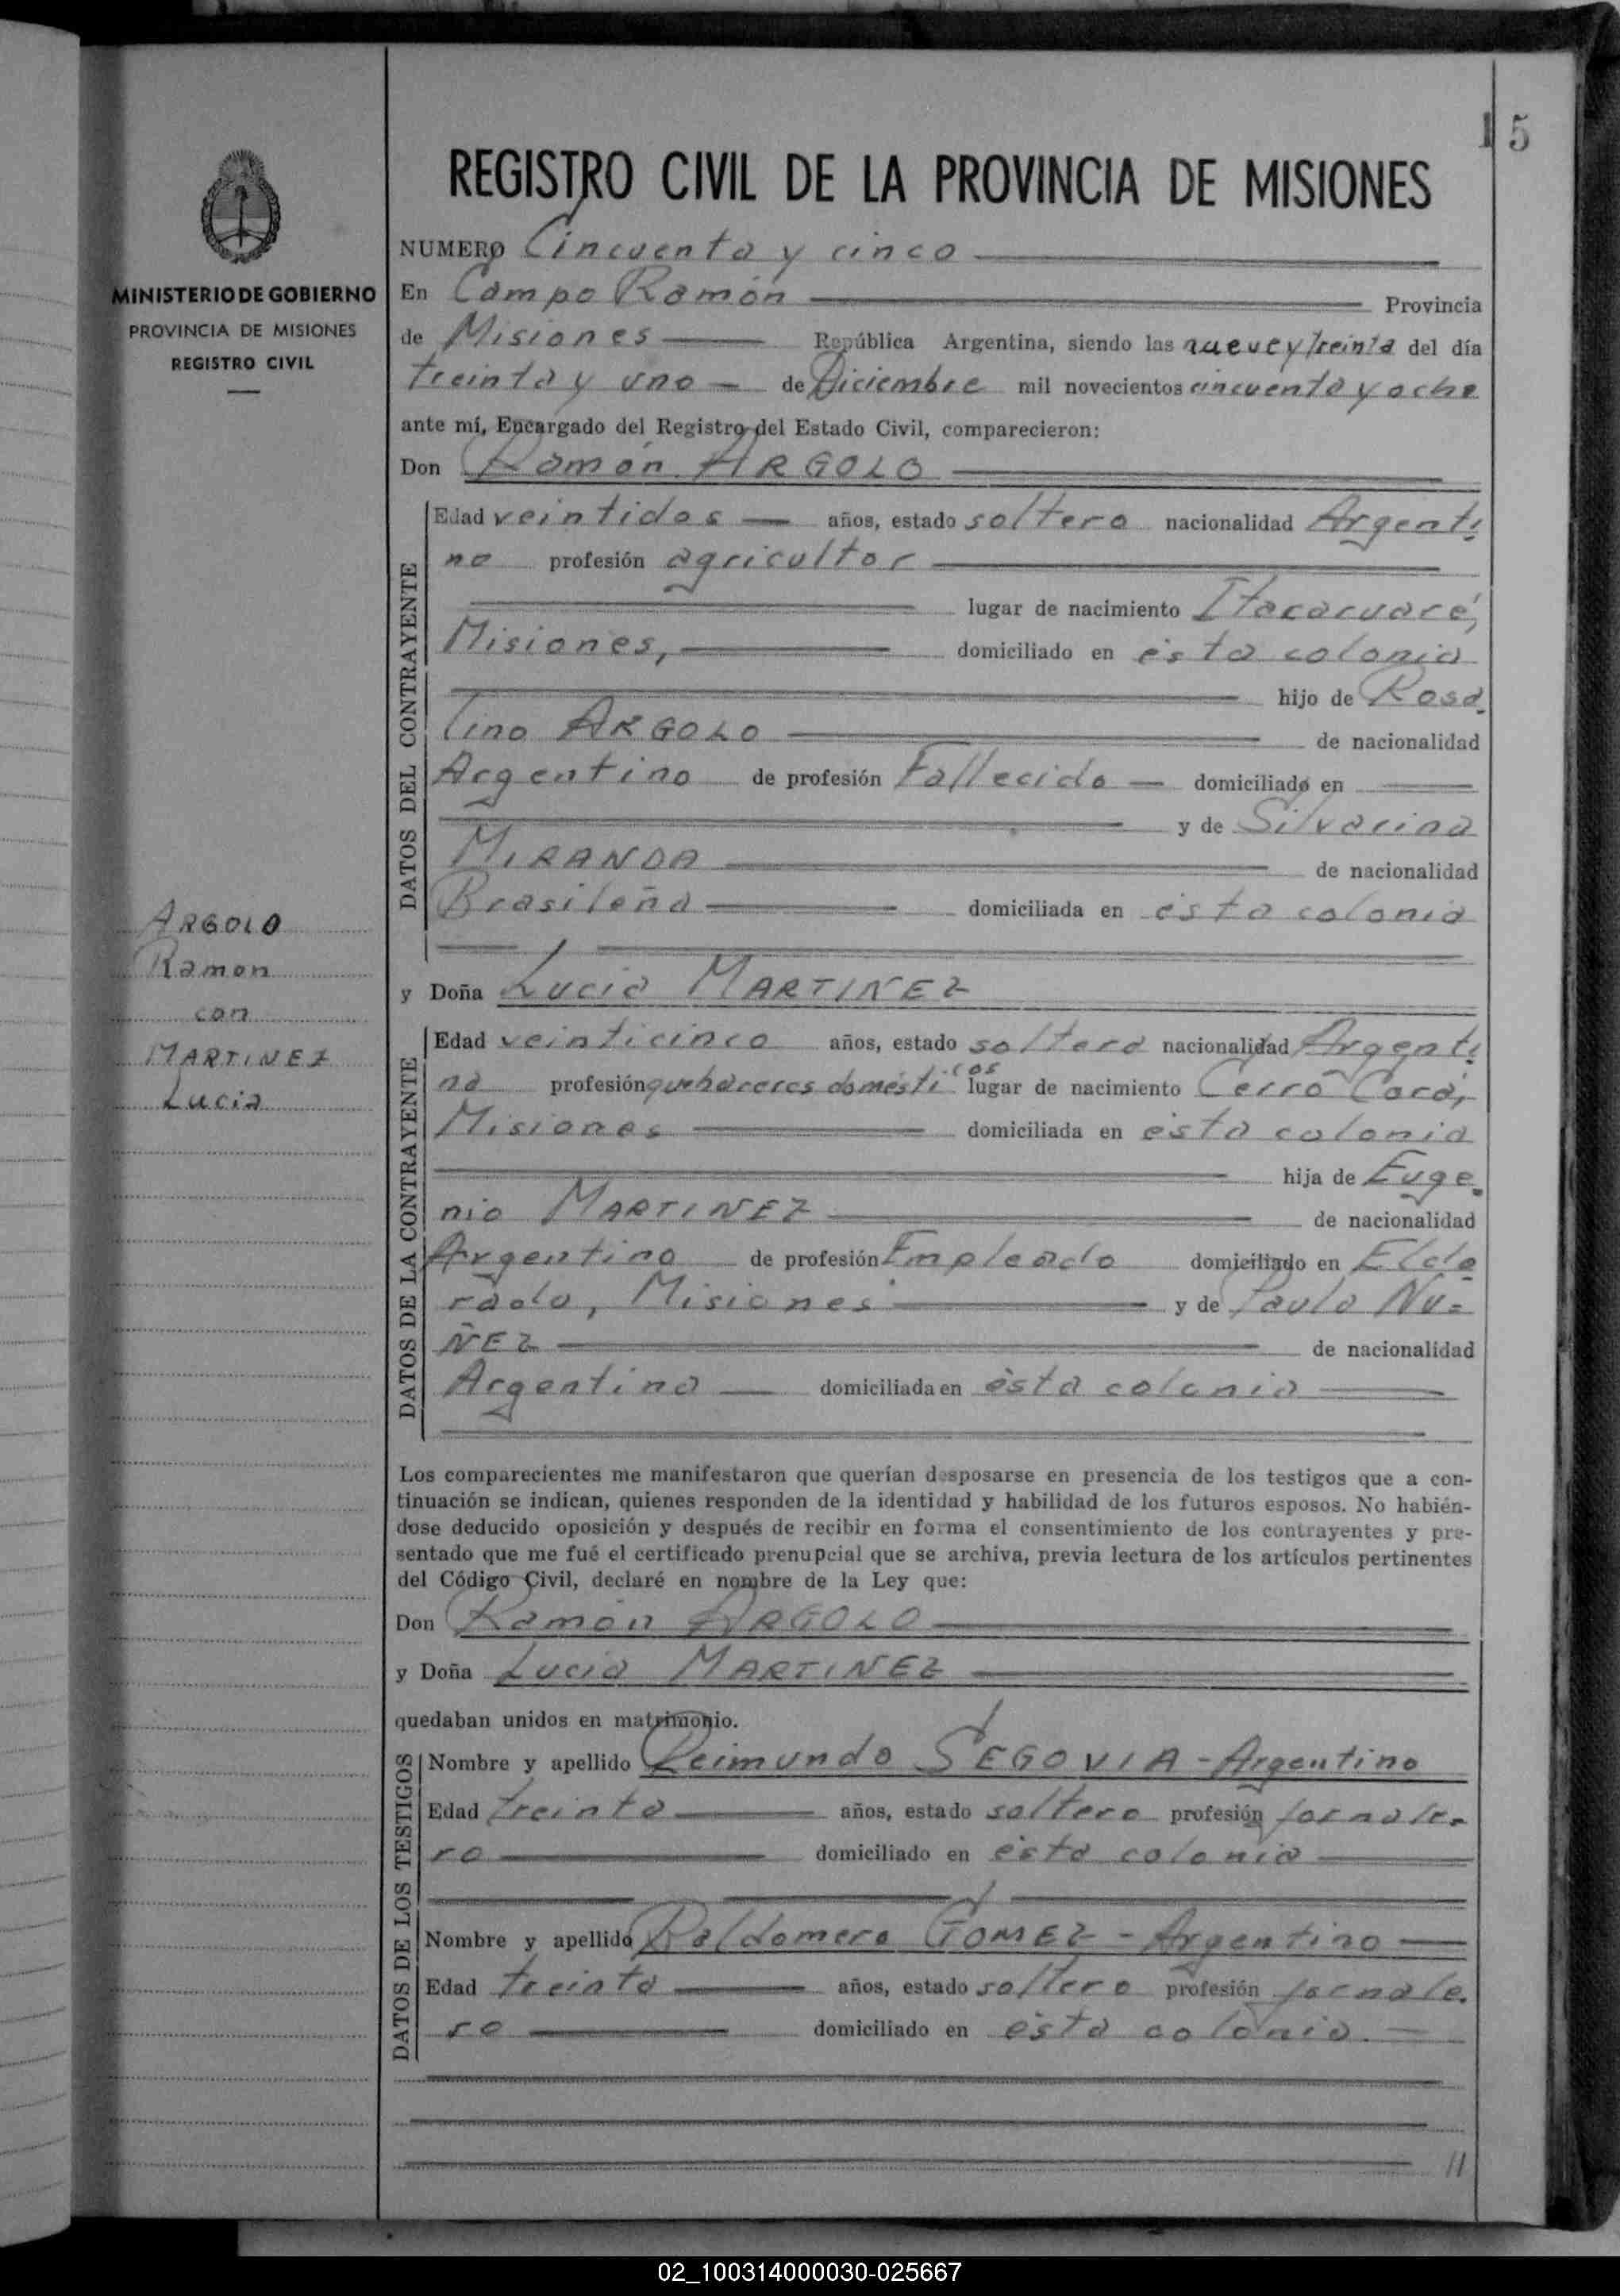 15
REGISTRO CIVIL DE LA PROVINCIA DE MISIONES
MINISTERIO DE GOBIERNO
PROVINCIA DE MISIONES
REGISTRO CIVIL
NUMERO Cincuenta y cinco
En Campo Ramón Provincia
de Misiones República Argentina, siendo las nueve y treinta del día
treinta y uno de Diciembre mil novecientos cincuenta y ocho
ante mí, Encargado del Registro del Estado Civil, comparecieron:
Don Ramón ARGOLO
DATOS DEL CONTRAYENTE
Edad veintidos años, estado soltero nacionalidad Argenti
no profesión agricultor
lugar de nacimiento Itacaruaré,
Misiones, domiciliado en ésta colonia
hijo de Rosa
lino ARGOLO de nacionalidad
Argentino de profesión Fallecido domiciliado en
y de Silvarina
MIRANDA de nacionalidad
Brasileña domiciliada en ésta colonia
ARGOLO
Ramon
con
MARTINEZ
Lucia
y Doña Lucia MARTINEZ
DATOS DE LA CONTRAYENTE
Edad veinticinco años, estado soltera nacionalidad Argenti
na profesión quehaceres domésticos lugar de nacimiento Cerro Corá,
Misiones domiciliada en ésta colonia
hija de Euge
nio MARTINEZ de nacionalidad
Argentino de profesión Empleado domiciliado en Eldo
rado, Misiones y de Paula NU=
ÑEZ de nacionalidad
Argentina domiciliada en ésta colonia
Los comparecientes me manifestaron que querían desposarse en presencia de los testigos que a con-
tinuación se indican, quienes responden de la identidad y habilidad de los futuros esposos. No habién-
dose deducido oposición y después de recibir en forma el consentimiento de los contrayentes y pre-
sentado que me fué el certificado prenupcial que se archiva, previa lectura de los artículos pertinentes
del Código Civil, declaré en nombre de la Ley que:
Don Ramón ARGOLO
y Doña Lucia MARTINEZ
quedaban unidos en matrimonio.
DATOS DE LOS TESTIGOS
Nombre y apellido Reimundo SEGOVIA - Argentino
Edad treinta años, estado soltero profesión jornale-
ro domiciliado en ésta colonia
Nombre y apellido Baldomero GOMEZ - Argentino
Edad treinta años, estado soltero profesión jornale
ro domiciliado en ésta colonia.
//
02_100314000030-025667